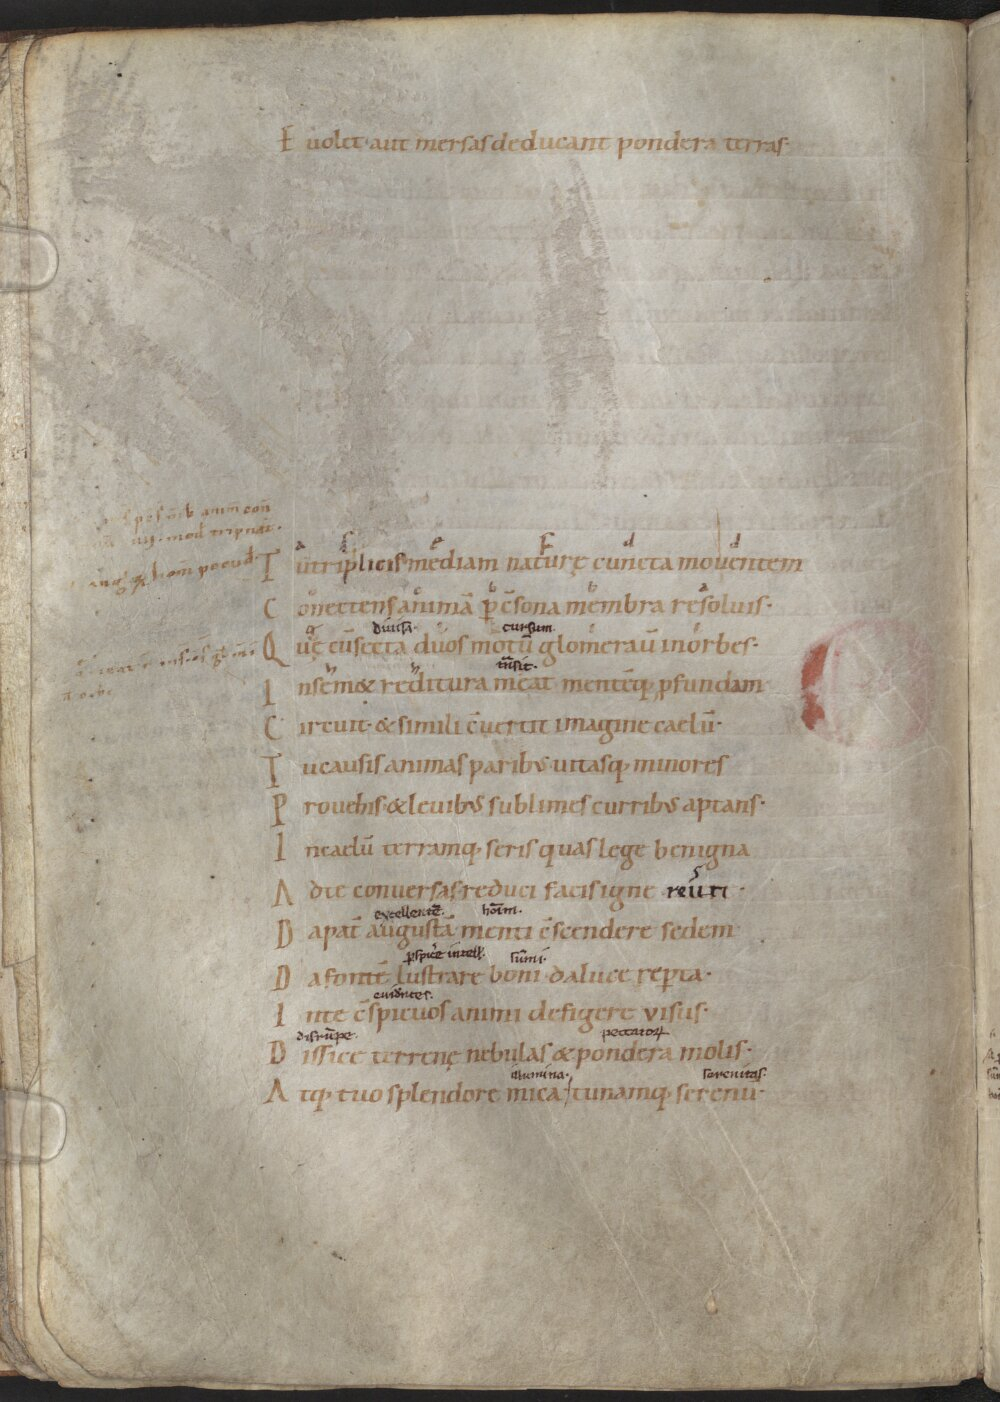 E uolet · aut mersas deducant pondera terras ·
T u triplicis mediam naturę cuncta mouentem
C onectens animā p̄ c̄sona membra resoluis ·
diuisā · cursum
Q uę cū secta duos motū glomerauit in orbes ·
t̄nsit ·
I n semet reditura meat mentēq; p̱fundam
C ircuit · & simili c̄uertit imagine caelū ·
T u causis animas paribus uitasq; minores
P rouehis · & leuibus sublimes curribus aptans ·
I n caelū terramq; seris quas lege benigna
A d te conuersas reduci facis igne reuerti ·
excellentē · hoīm ·
D a pat̄ augustā menti c̄scendere sedem
p̱spicē intell · sūmi ·
D a fontē lustrare boni · da luce rep̱ta ·
euidentes ·
I n te c̄spicuos animi defigere visus ·
disrūpe · peccatoꝝ
D issice terrenę nebulas & pondera molis ·
illumina · serenitas ·
A tq; tuo splendore mica / tu namq; serenū ·